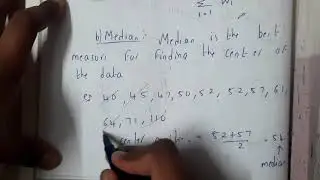 b) Median :- Median is the best
measure for finding the center of
the data
40, 45, 47, 50, 52, 52, 57, 61,
64, 71, 110
= 52+57
2
median